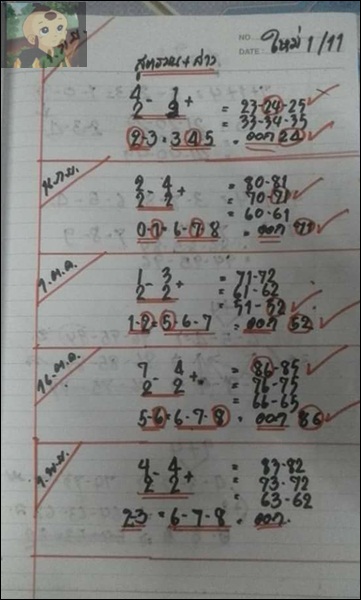 NO.
DATE ใหม่ 1/11
สูตรวน + ลาว
4 - 1 +
2 2
= 23-24-25
= 33-34-35
2-3 = 3 4 5 = ออก 24
2 - 4 +
2 2
= 80-81
= 70-71
= 60-61
0-7 = 6-7-8 = ออก 71
1.ต.ค.
1 3 +
2 - 2
= 71-72
= 61-62
= 51-52
1-2 = 5-6-7 = ออก 52
16 ต.ค.
7 4 +
2 - 2
= 86-85
= 76-75
= 66-65
5-6 = 6-7-8 = ออก 86
1.พ.ย.
4 - 4 +
2 2
= 83-82
= 73-72
= 63-62
2-3 = 6-7-8 = ออก.